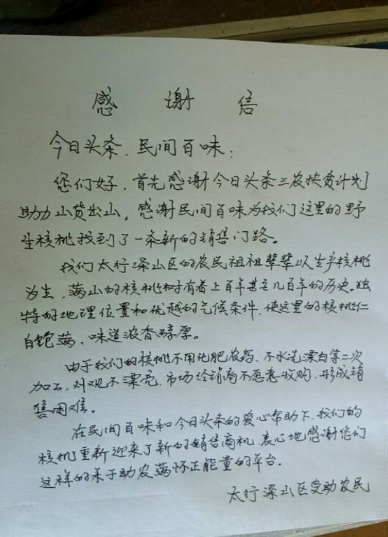 感谢信
今日头条、民间百味:
您们好,首先感谢今日头条三农扶贫计划
助力山货出山,感谢民间百味为我们这里的野
生核桃找到了一条新的销售门路。
我们太行深山区的农民祖祖辈辈以生产核桃
为生,满山的核桃树有着上百年甚至几百年的历史。独
特的地理位置和优越的气候条件,使这里的核桃仁
自饱满、味道浓香醇厚。
由于我们的核桃不用化肥农药、不水洗漂白等二次
加工,外观不漂亮,市场经销商不愿意收购,形成销
售困难。
在民间百味和今日头条的爱心帮助下,我们的
核桃重新迎来了新的销售商机,衷心地感谢您们
这样的乐于助农满怀正能量的平台。
太行深山区受助农民